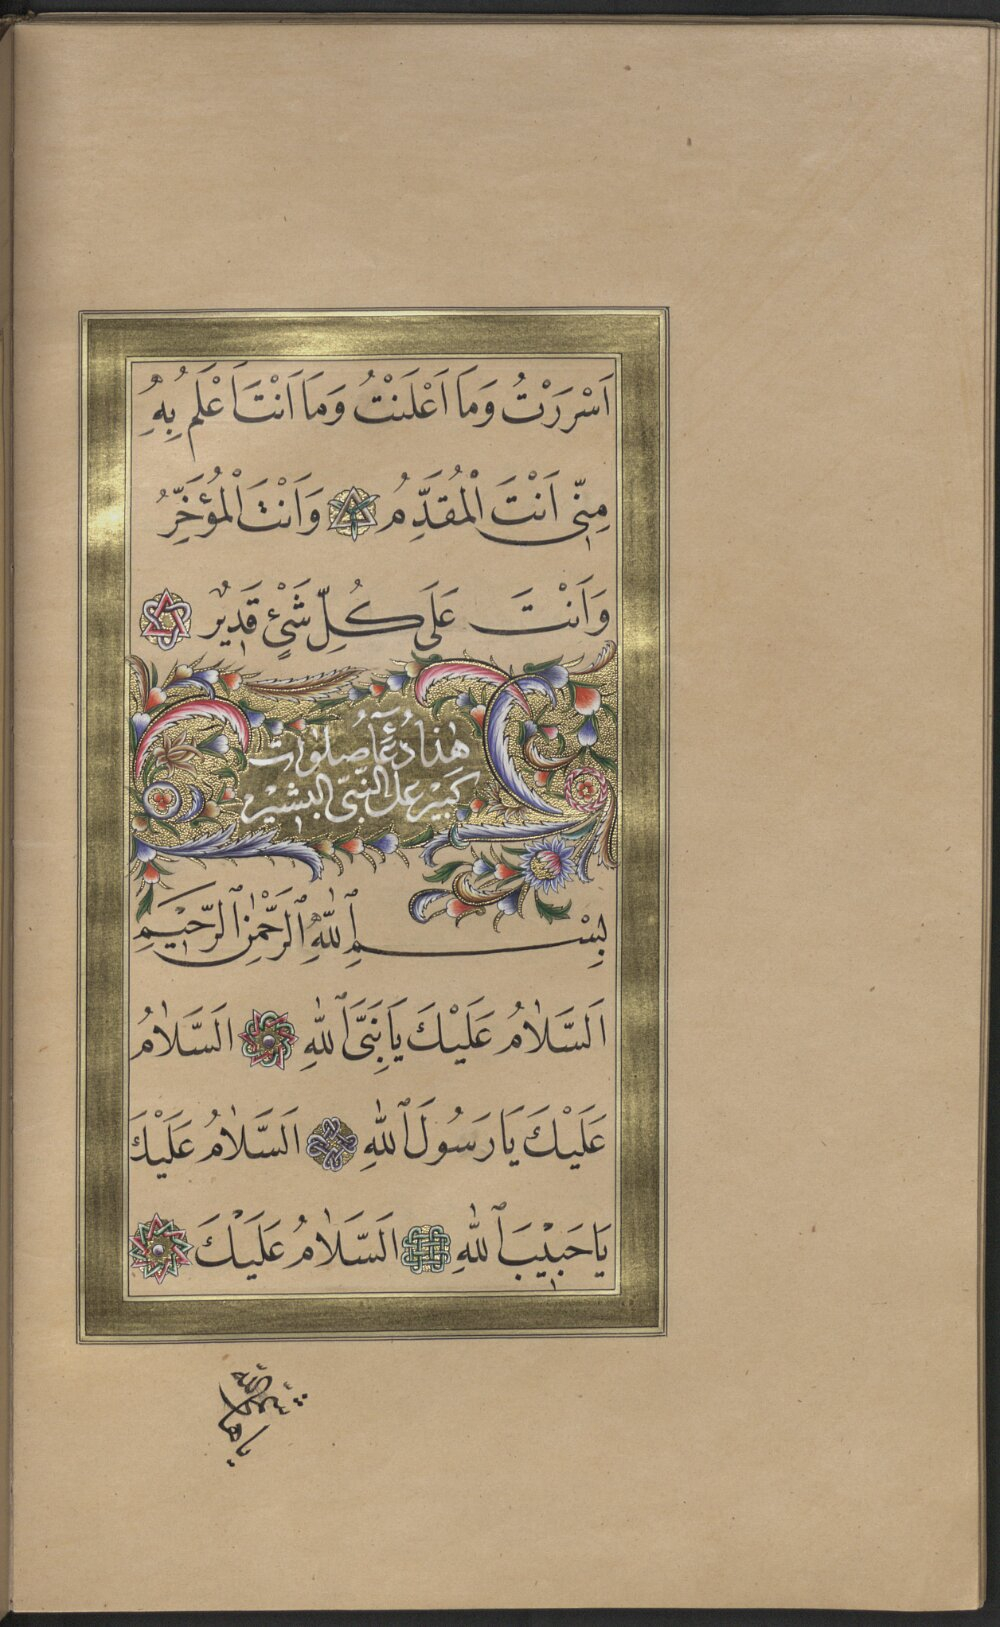 اَسْرَرْتُ وَمَا اَعْلَنْتُ وَمَا اَنْتَ اَعْلَمُ بِهِ
مِنّ۪ى اَنْتَ الْمُقَدِّمُ وَاَنْتَ الْمُؤَخِّرُ
وَاَنْتَ عَلَى كُلِّ شَىْءٍ قَد۪يرٌ
هٰذَا دُعَٓاءُ صَلَوَات
كَب۪يرْ عَلَى النَّبِىّ الْبَش۪يرْ
بِسْمِ ٱللّٰهِ ٱلرَّحْمٰنِ ٱلرَّح۪يمِ
اَلسَّلَامُ عَلَيْكَ يَا نَبِىَّ ٱللّٰهِ اَلسَّلَامُ
عَلَيْكَ يَا رَسُولَ ٱللّٰهِ اَلسَّلَامُ عَلَيْكَ
يَا حَب۪يبَ ٱللّٰهِ اَلسَّلَامُ عَلَيْكَ